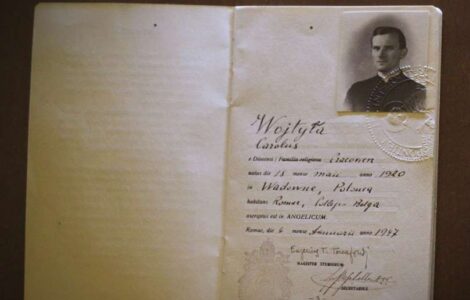 Wojtyła
Carolus
e Dioecesi / Familia religiosa Cracoven
natus die 18 mense maii anno 1920
in Wadowice, Polonia
habitans Romae, Collegio Belga
receptus est in ANGELICUM.
Romae, die 6 mense Januarii anno 1947
MAGISTER STUDIORUM
SECRETARIUS